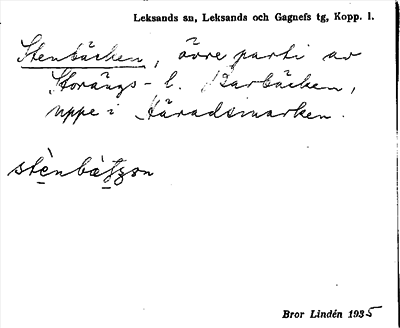 Leksands sn, Leksands och Gagnefs tg, Kopp. l.
Stenbäcken, övre parti av
Storängs- l. Barbäcken,
uppe i Häradsmarken.
Bror Lindén 1935